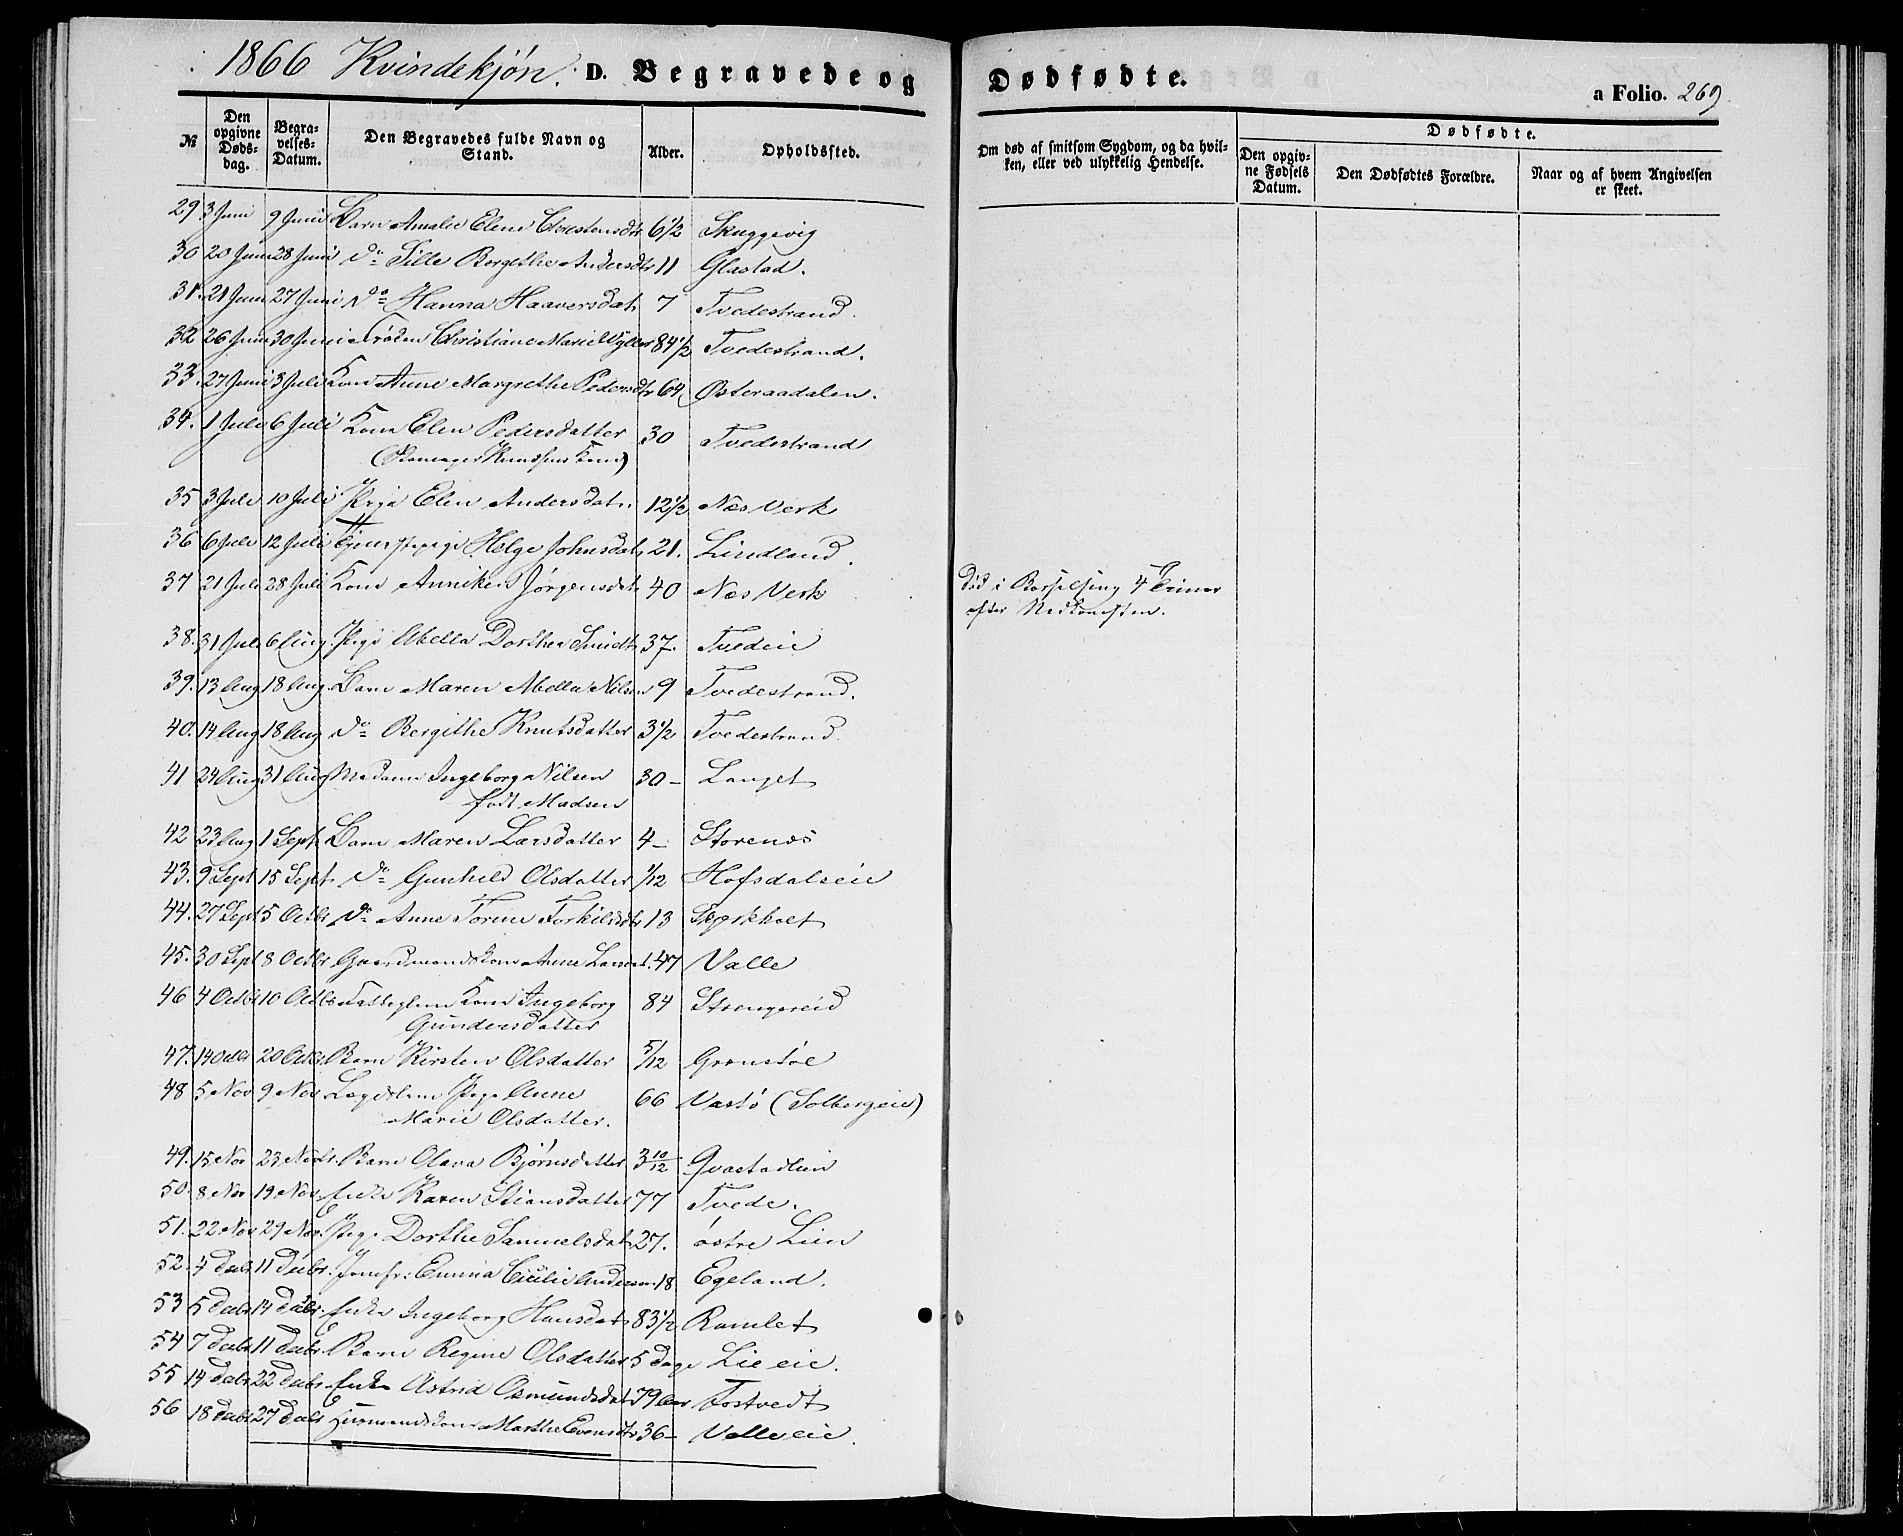 1866 Kvindekjön. D. Begravede og Dødfødte. a Folio. 269.
№ Den opgivne Døds-dag. Begra-velses-Datum. Den Begravedes fulde Navn og Stand. Alder. Opholdssted. Om død af smitsom Sygdom, og da hvil-ken, eller ved ulykkelig Hendelse. Dødfødte. Den opgiv-ne Fødsels Datum. Den Dødfødtes Forældre. Naar og af hvem Angivelsen er skeet.
29 3 Juni 9 Juni Barn Amalie Elene Christensdtr 6 1/2 Skuggevig
30 20 Juni 28 Juni do Sille Bergethe Andersdtr 11 Glastad.
31. 21 Juni 27 Juni do Hanna Haaversdat. 7 Tvedestrand.
32 26 Juni 30 Juni Frøken Christiane Marie Wyller 84 1/2 Tvedestrand.
33. 27 Juni 3 Juli Kone Anne Margrethe Pedersdtr 64 Østeraadalen.
34. 1 Juli 6 Juli Kone Elen Pedersdatter 30 Tvedestrand
(Skomager Knudsens Kone)
35 3 Juli 10 Juli Pige Elen Andersdatr. 12 1/2 Næs Verk
36 6 Juli 12 Juli Tjenstepige Helge Johnsdat. 21. Lindland.
37 21 Juli 28 Juli Kone Anniken Jørgensdat. 40 Næs Verk Død i Barselseng 4 Timer
efter Nedkomsten.
38. 31 Juli 6 Aug. Pige Abella Dorthea Smidt 37. Tvedeie
39. 13 Aug 18 Aug. Barn Maren Abella Nilsen 9 Tvedestrand.
40. 14 Aug 18 Aug do Bergithe Knutsdatter 3 1/2 Tvedestrand.
41 24 Aug 31 Aug Madame Ingeborg Nilsen 30 - Langet
født Madsen
42 23 Aug 1 Sept. Barn Maren Larsdatter 4 - Storenæs
43. 9 Sept 15 Sept. do Gunhild Olsdatter 1/12 Hofsdalseie
44. 27 Sept 5 Octbr do Anne Torine Torkildsdtr 13
45. 30 Sept 8 Octbr Gaardmandskone Anne Larsdat. 47 Valle
46 4 Octbr 10 Octbr Fattiglem Kone Ingeborg 84 Strengereid
Gundersdatter
47. 14 Octbr 20 Octbr. Barn Kirsten Olsdatter 5/12 Grønstøe
48 5 Nov 9 Nov Lægdslem Pige Anne 66 Vastö (Solbergeie)
Marie Olsdatter.
49. 15 Nov 23 Novbr. Barn Olava Bjørnsdatter 3 10/12 Qvastadlien
50. 8 Nov 19 Nov. Enke Karen Stiansdatter 77 Tvede.
51. 22 Nov 29 Nov. Pige Dorthe Samuelsdat. 27. østre Lien
52. 4 Decbr 11 Decbr. Jomfr: Emma Cicilie Andersen. 18 Egeland.
53 5 Decbr 14 Decbr. Enke Ingeborg Hansdat. 83 1/2 Ramlet
54 7 Decbr 11 Decbr. Barn Regine Olsdatter 5 Dage Lieeie.
55 14 Decbr 22 Decbr. Enke Astrid Osmundsdat. 79 Aar Fostvedt
56 18 Decbr 27 Decbr Husmandskone Marthe Evensdtr 36 - Valleeie.